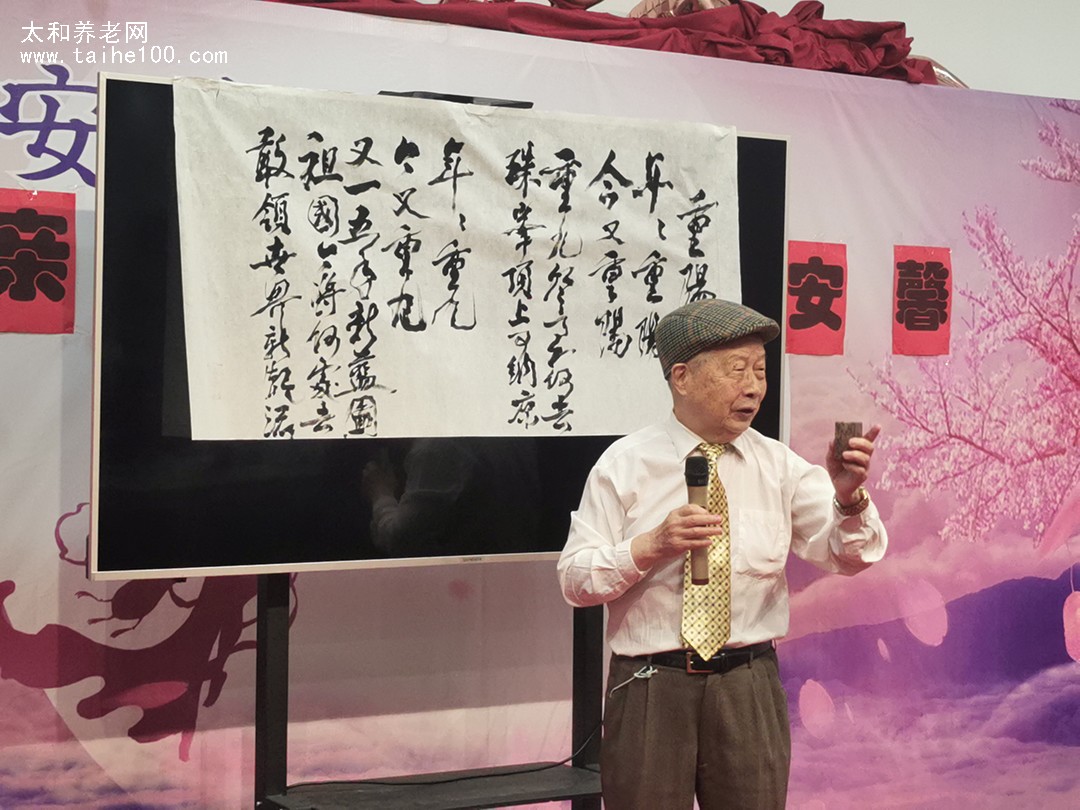 太和养老网
www.taihe100.com
安
重陽
年々重陽
今又重陽
重九登高何去
珠峯頂上可纳凉
年々重九
今又重九
又一五年新蓝圖
祖國今将何处去
敢領世界新潮流
安
馨